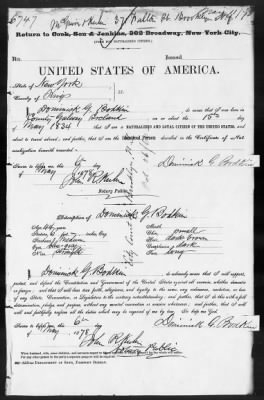 6747
Return to Cook, Son & Jenkins, 262 Broadway, New York City.
No. Issued
UNITED STATES OF AMERICA.
State of New York
County of Kings
I, Dominick G. Bodkin do swear that I was born in
County Galway Ireland on the 15th day of
May 1834 that I am a NATURALIZED AND LOYAL CITIZEN OF THE UNITED STATES, and
about to travel abroad, and further, that I am the Identical Person described in the Certificate of Nat-
uralization herewith annexed
Sworn to before me this 6th
day of May 1878
John R. Kuhn
Notary Public
Dominick G. Bodkin
Description of Dominick G. Bodkin
Age, 44 years
Mouth
Stature, feet inches, Eng.
Chin, small
Forehead, Medium
Hair, dark brown
Eyes
Complexion, dark
Nose
Face, long
I, Dominick G. Bodkin do solemnly swear that I will support,
protect, and defend the Constitution and Government of the United States against all enemies, whether domestic
or foreign; and that I will bear true faith, allegiance, and loyalty to the same, any ordinance, resolution, or law
of any State, Convention, or Legislature to the contrary notwithstanding; and further, that I do this with a full
determination, pledge, and purpose, without any mental reservation or evasion whatsoever; and further, that I will
well and faithfully perform all the duties which may be required of me by law. So help me God.
Sworn to before me, this 6th
day of May 1878
Dominick G. Bodkin
John R. Kuhn
Notary Public